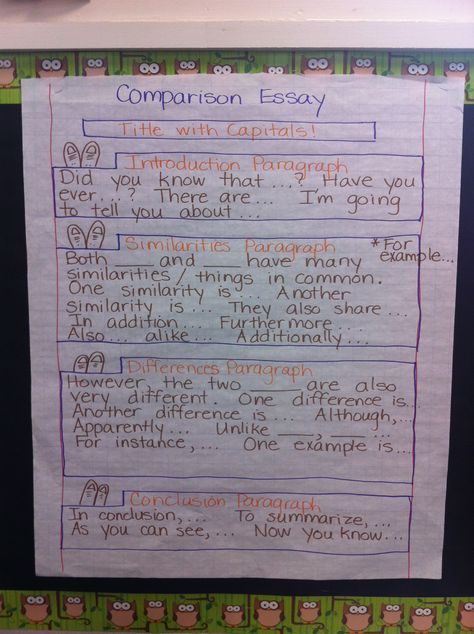 Comparison Essay
Title with Capitals!
Introduction Paragraph
Did you know that ...? Have you
ever...? There are... I'm going
to tell you about ...
Similarities Paragraph
*For
example...
Both ___ and ___ have many
similarities / things in common.
One similarity is ... Another
similarity is ... They also share ...
In addition ... Furthermore ...
Also... alike... Additionally...
Differences Paragraph
However, the two ___ are also
very different. One difference is...
Another difference is ... Although,...
Apparently ... Unlike ___, ___ ...
For instance, ... One example is...
Conclusion Paragraph
In conclusion, ... To summarize, ...
As you can see, ... Now you know...